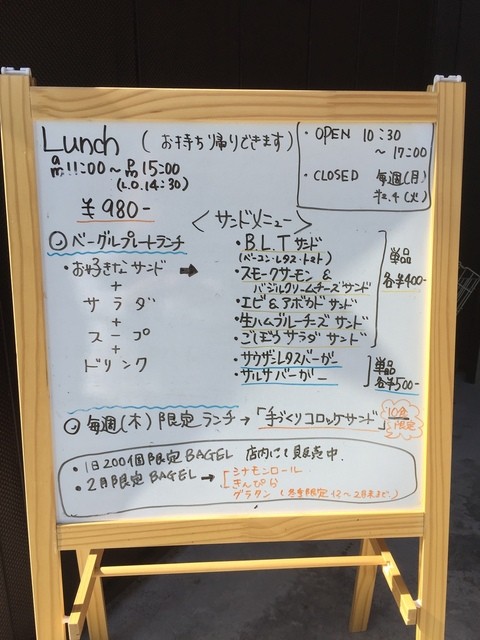 Lunch （お持ち帰りできます）
am 11:00 〜 pm 15:00
（L.O.14:30）
¥980-
・OPEN 10:30
〜 17:00
・CLOSED 毎週（月）
（火）
＜サンドメニュー＞
◎ベーグルプレートランチ
・お好きなサンド ➡
+
サラダ
+
スープ
+
ドリンク
・B.L.Tサンド
（ベーコン・レタス・トマト）
・スモークサーモン &
バジルクリームチーズサンド
・エビ&アボカドサンド
・生ハムブルーチーズサンド
・ごぼうサラダサンド
単品
各¥400-
・サウザンレタスバーガー
・サルサバーガー
単品
各¥500-
◎毎週（木）限定ランチ→「手づくりコロッケサンド」
10食
限定
・1日200個限定BAGEL 店内にて販売中.
・2月限定BAGEL →
シナモンロール
きんぴら
グラタン（冬季限定 12〜2月末まで.）